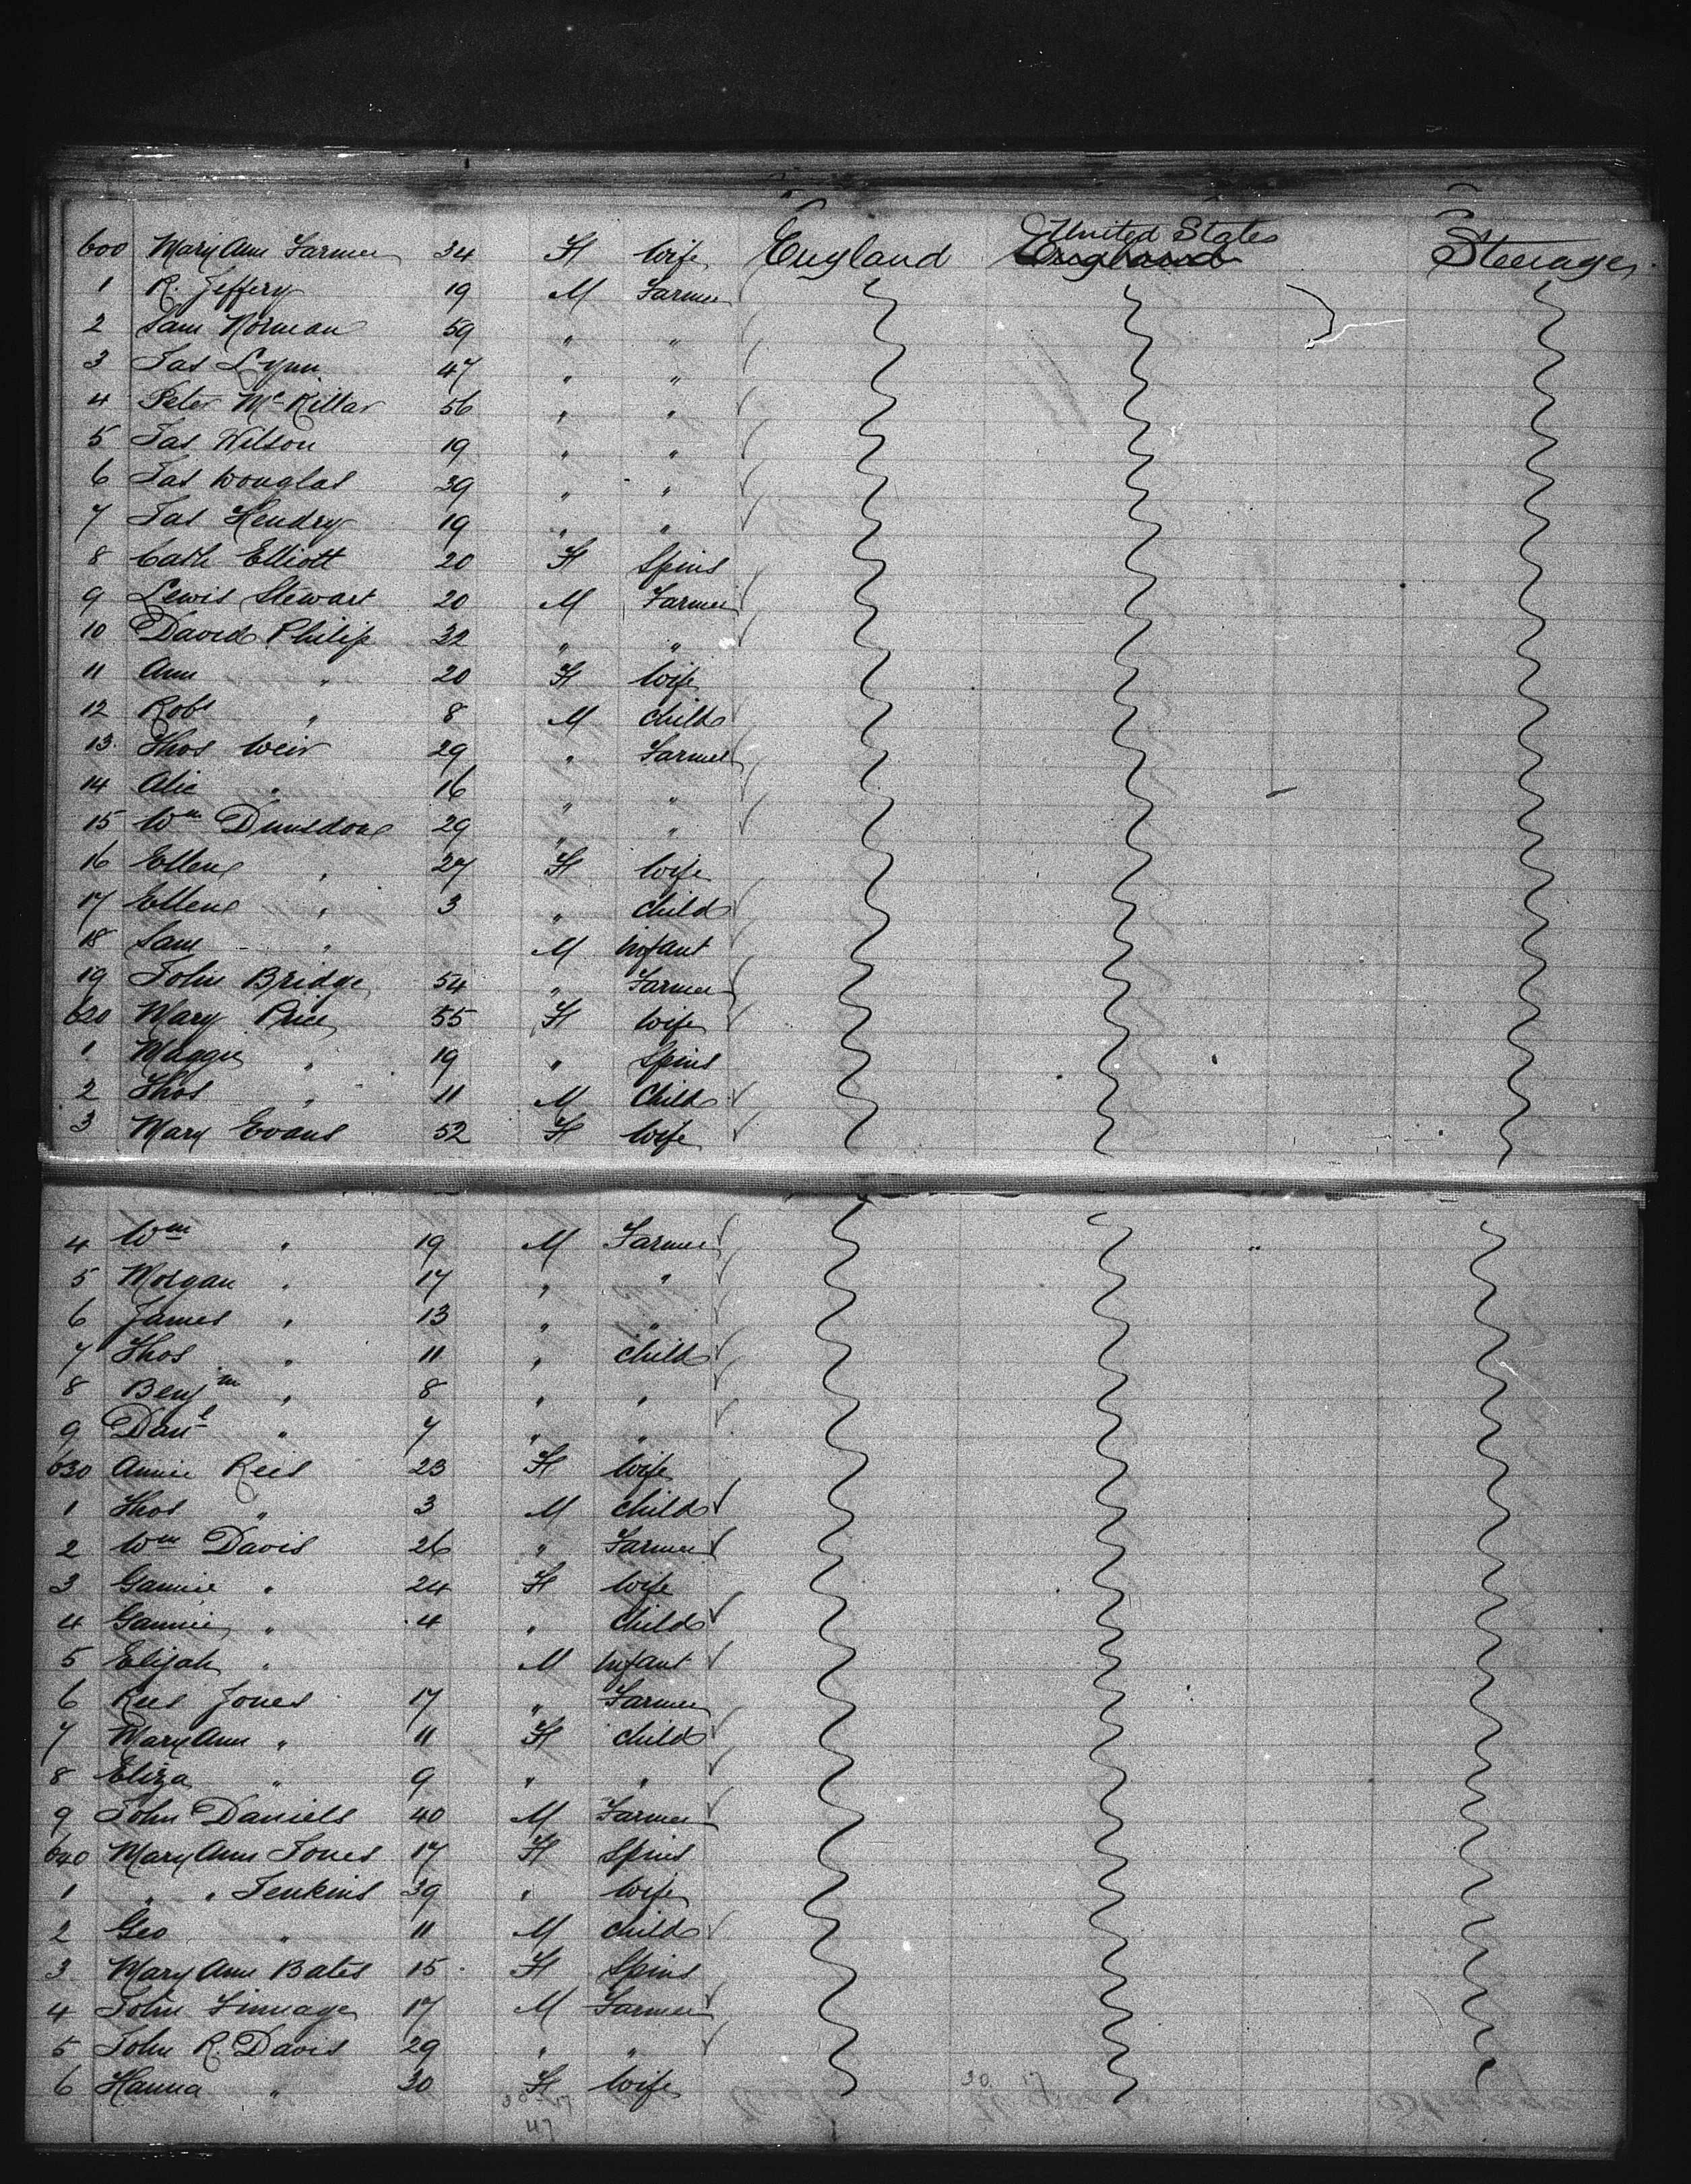 600 Mary Ann Farmer 34 F Wife England United States England Steerage
1 R. Jeffery 19 M Farmer
2 Sam Norman 59 " "
3 Jas Lynn 47 " "
4 Peter McKillar 56 " "
5 Jas Wilson 19 " "
6 Jas Douglas 39 " "
7 Jas Hendry 19 " "
8 Cath Elliott 20 F Spins
9 Lewis Stewart 20 M Farmer
10 David Philip 32 " "
11 Ann " 20 F Wife
12 Robt " 8 M Child
13 Thos Weir 29 " Farmer
14 Alic " 16 " "
15 Wm Dunsdon 29 " "
16 Ellen " 27 F Wife
17 Ellen " 3 " Child
18 Sam " M Infant
19 John Bridge 54 " Farmer
620 Mary Price 55 F Wife
1 Maggie " 19 " Spins
2 Thos " 11 M Child
3 Mary Evans 52 F Wife
4 Wm " 19 M Farmer
5 Morgan " 17 " "
6 James " 13 " "
7 Thos " 11 " Child
8 Benjm " 8 " "
9 Danl " 7 " "
630 Annie Rees 23 F Wife
1 Thos " 3 M Child
2 Wm Davis 26 " Farmer
3 " 24 F Wife
4 " 4 " Child
5 Elijah " M Infant
6 Rees Jones 17 " Farmer
7 Mary Ann " 11 F Child
8 Eliza " 9 " "
9 John Daniels 40 M Farmer
640 Mary Ann Jones 17 F Spins
1 " " Jenkins 39 " Wife
2 Geo " 11 M Child
3 Mary Ann Bates 15 F Spins
4 John 17 M Farmer
5 John R. Davis 29 " "
6 Hanna " 30 F Wife
47